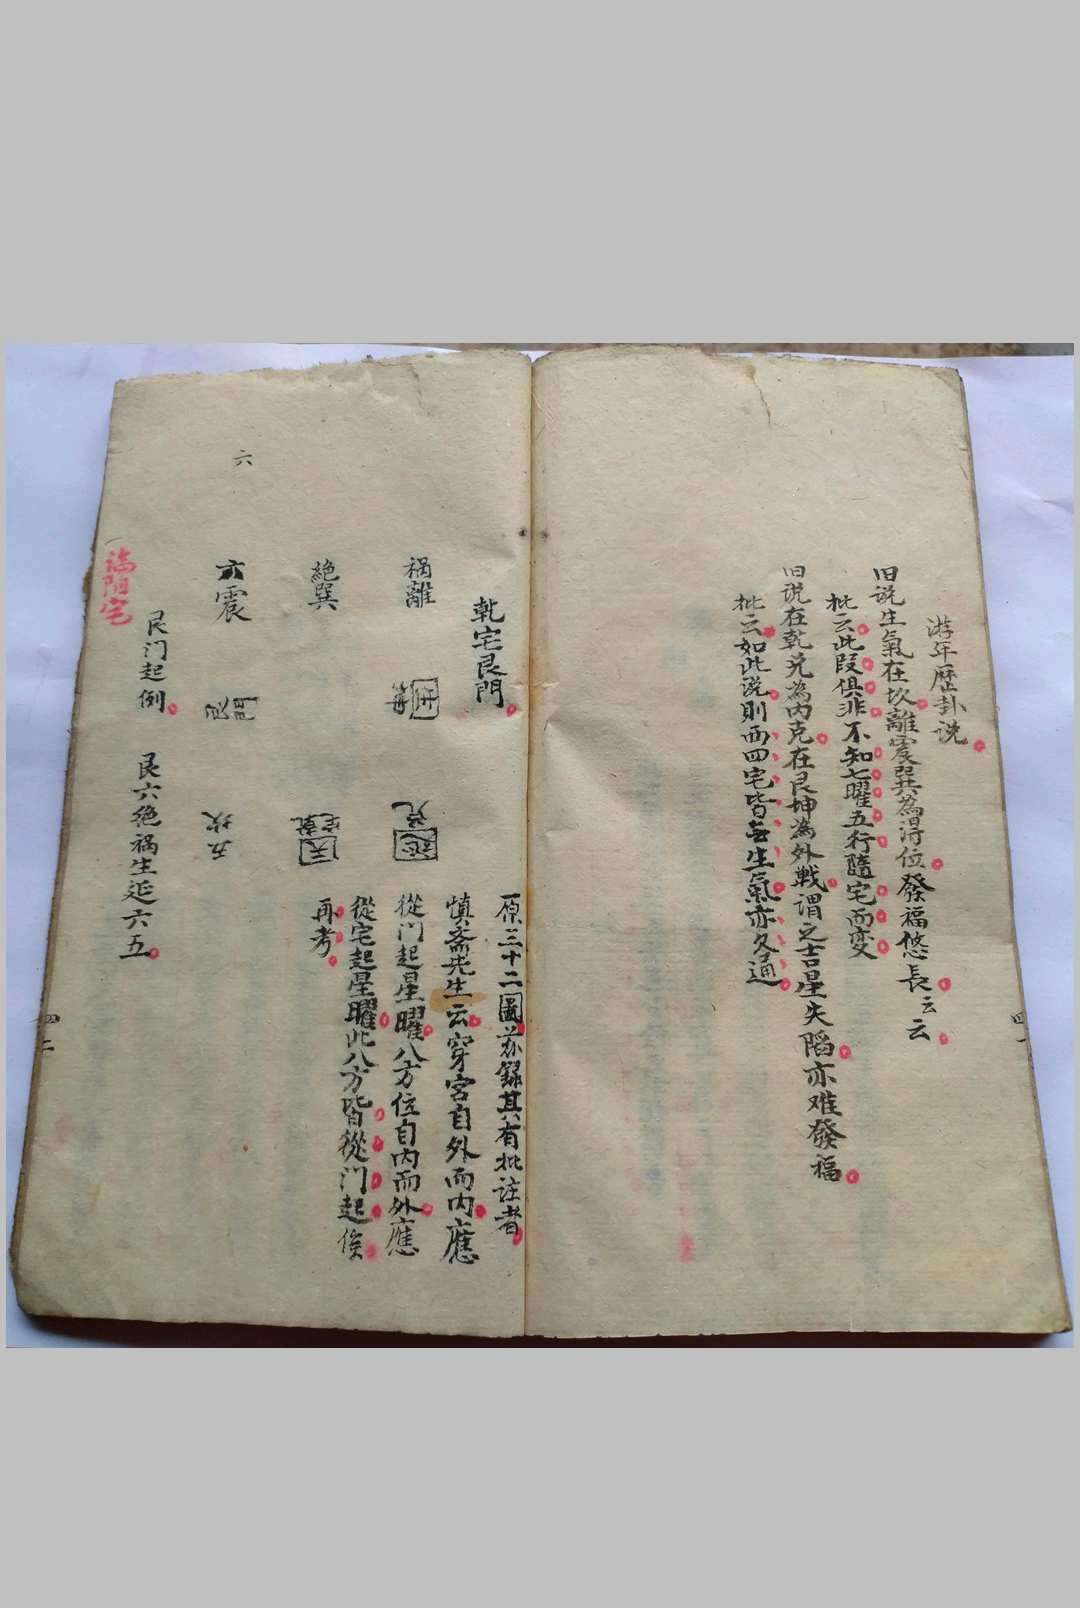 游年歷卦说
旧说生氣在坎離震巽為得位發福悠長云云
批云此段俱非不知七曜五行隨宅而变
旧说在乾兑為内克在艮坤為外戰谓之吉星失陷亦难發福
批云如此说則西四宅皆無生氣亦欠通
四一
原三十二圖茲錄其有批註者
乾宅艮門
慎斎先生云穿宮自外而内應
從门起星曜八方位自内而外應
從宅起星曜此八方皆從门起俟
再考
祸離
生
延
兑
絶巽
天
乾宅
六震
艮門
五坎
六
艮门起例
艮六绝祸生延六五
論陽宅
四二